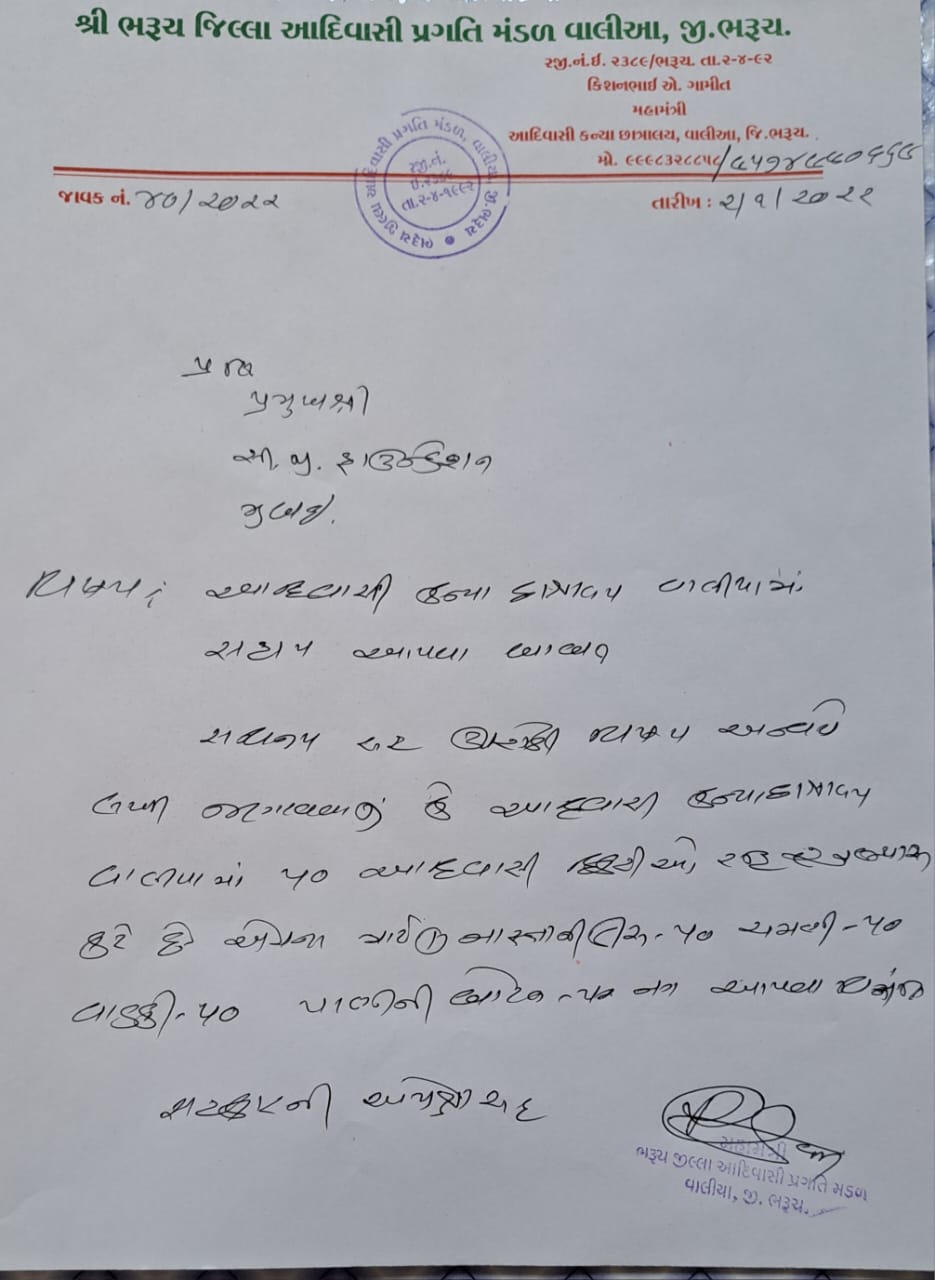 શ્રી ભરૂચ જિલ્લા આદિવાસી પ્રગતિ મંડળ વાલીઆ, જી.ભરૂચ.
રજી.નં.ઈ. ૨૩૮૯/ભરૂચ. તા.૨-૪-૯૨
કિશનભાઈ એ. ગામીત
મહામંત્રી
આદિવાસી કન્યા છાત્રાલય, વાલીઆ, જિ.ભરૂચ.
મો.
જાવક નં. ૪૦/૨૦૨૨
તારીખ : ૨/૧/૨૦૨૨
ભરૂચ જીલ્લા આદિવાસી પ્રગતિ મંડળ, વાલીયા, જી. ભરૂચ
રજી.નં.
ઈ.૨૩૮૯
તા.૨-૪-૧૯૯૨
પ્રતિ
પ્રમુખશ્રી
સી. જી. ફાઉન્ડેશન
મુંબઈ.
વિષય : આદિવાસી કન્યા છાત્રાલય વાલીયામાં
સહાય આપવા બાબત
સવિનય સહ ઉપરોક્ત વિષય અન્વયે
લખી જણાવવાનું કે આદિવાસી કન્યા છાત્રાલય
વાલીયામાં ૫૦ આદિવાસી
કરે છે નાસ્તાની ડીશ-૫૦ ચમચી-૫૦
વાડકી-૫૦ પાણીની બોટલ નંગ આપવા વિનંતી
સહકારની અપેક્ષા સહ
મહામંત્રી
ભરૂચ જીલ્લા આદિવાસી પ્રગતિ મંડળ
વાલીયા, જી. ભરૂચ.